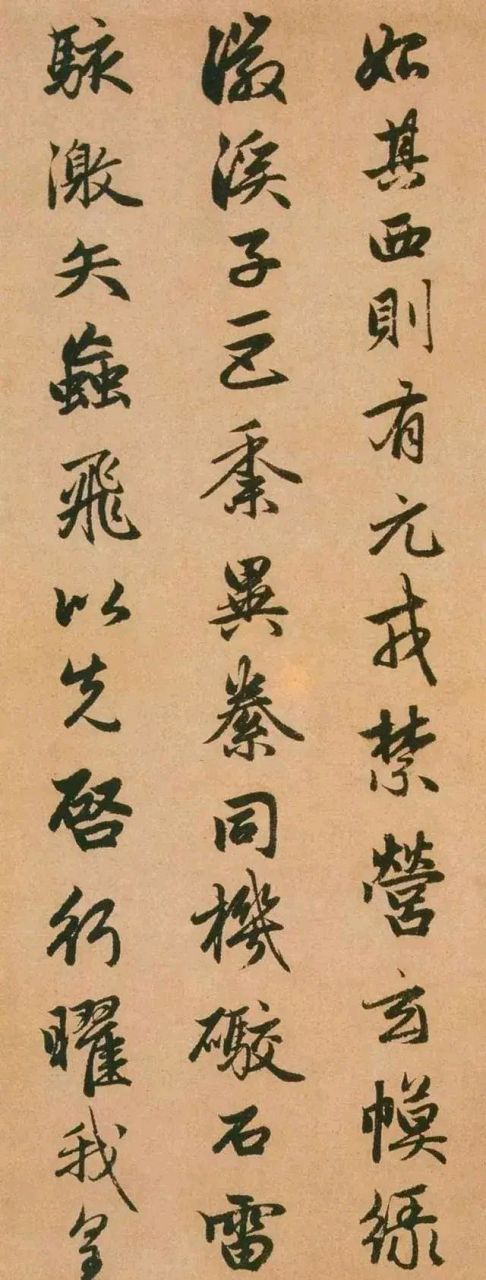 如其西則有元戎禁營玄幙綠
徽溪子巨黍異絭同機礮石雷
駭激矢蝱飛以先啓行曜我皇